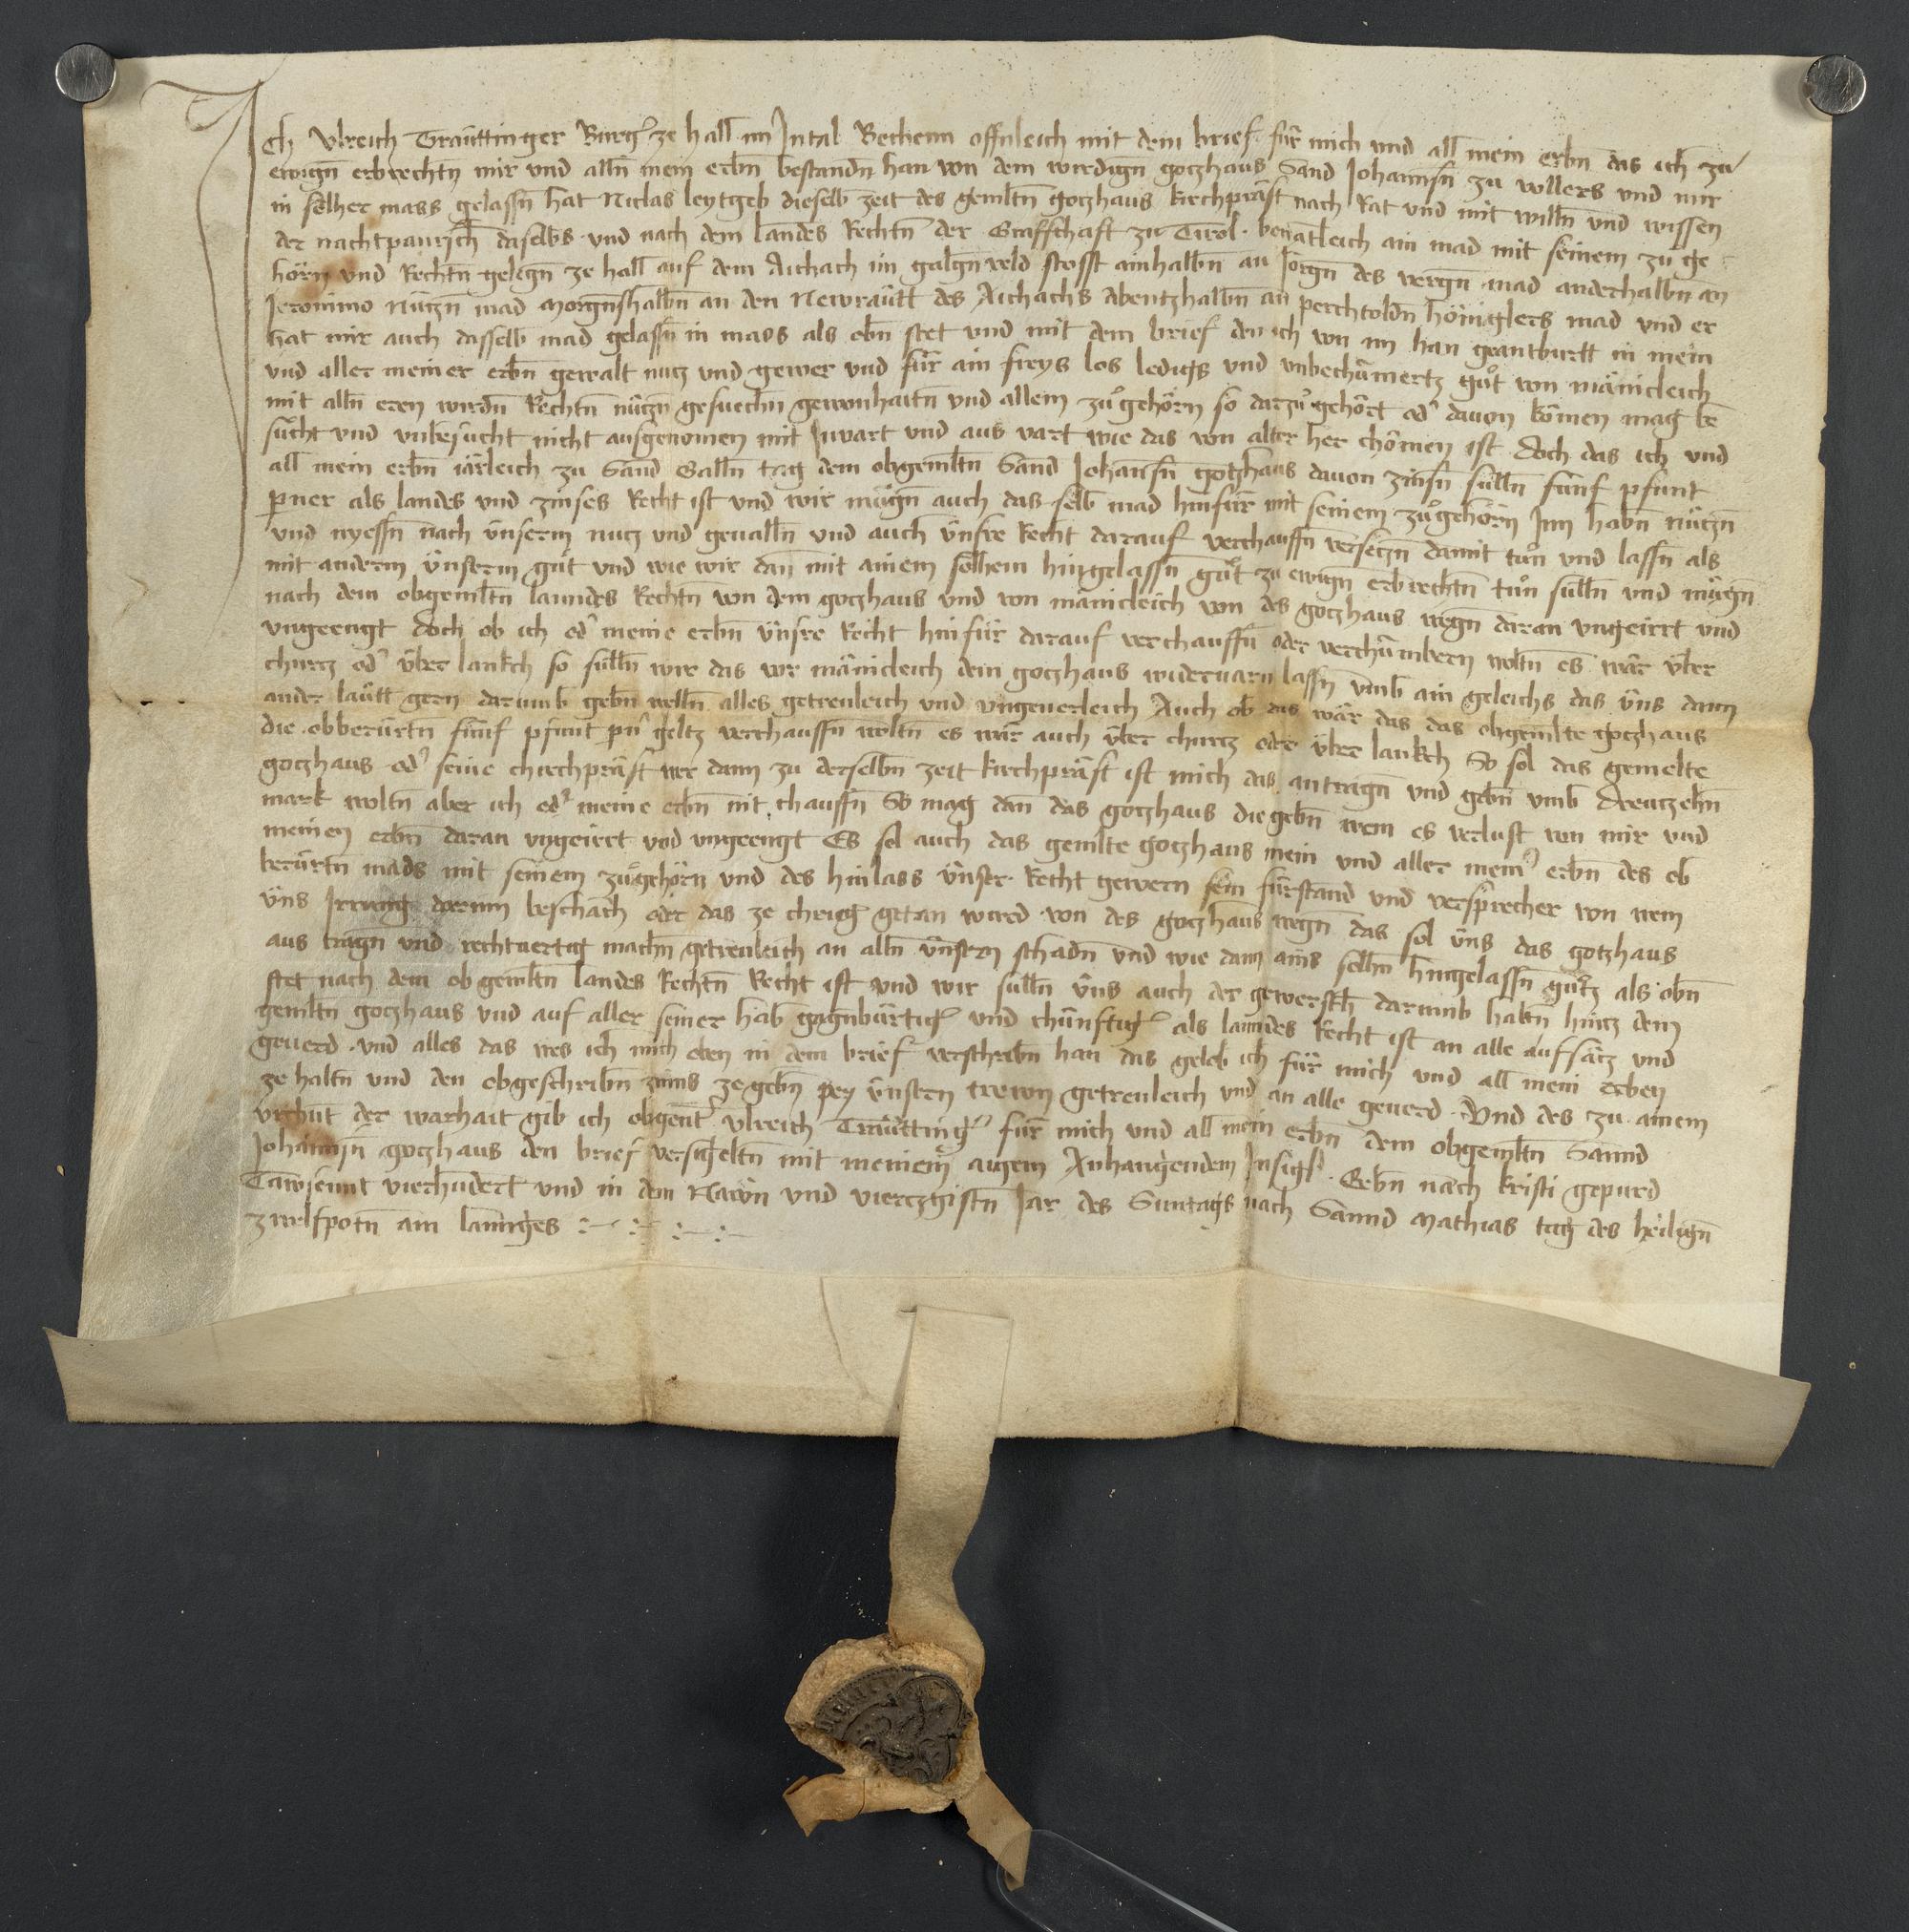 Ich Ulreich Trautinger Burg' ze hall im Intal Bechenn offnleich mit dem brief für mich und all mein erbn das ich zu
ewign erbrechtn mir und alln mein erbn bestandn han von dem wirdign gotzhaus Sand Johannsn zu vollers und mir
in selher mass gelassn hat Niclas leytgeb dieselb zeit des gemeltn gotzhaus kirchpräst nach Rat und mit willn und wissen
der nachtpaurschn daselbs und nach dem landes Rechtn der Graffschaft zu Tirol benätleich ain mad mit seinem zu ge
hörn und Rechtn gelegn ze hall auf dem Aichach im galgnveld stosst ainhalbn an Jörgn des vergn mad anderhalbn an
Jeronimo Nützn mad Morgnshalbn an den Newraütt des Aichachs Abentzhalbn an perchtoldn höniglers mad und er
hat mir auch dasselb mad gelassn in mass als obn stet und mit dem brief den ich von im han geantburtt in mein
und aller meiner erbn gewalt nutz und gewer und für ain freys los ledigs und unbechümertz güt von mänicleich
mit alln eren wirdn Rechtn nützn gesuechn gewonhaitn und allem zugehörn so darzu gehört od' davon kömen mag be
sücht und unbesücht nicht ausgenomen mit Invart und aus vart wie das von alter her chömen ist doch das ich und
all mein erbn järleich zu Sand Galln tag dem obgemeltn Sand Johansn gotzhaus davon zinsn sülln fünf pfunt
perner als landes und zinses Recht ist und wir mügn auch das selb mad hinfür mit seinem zugehörn Inn habn nützn
und nyessn nach unserm nutz und gevalln und auch ünsre Recht darauf verchauffn versetzn damit tün und lassn als
mit anderm ünserm güt und wie wir dan mit ainem solhem hingelassn güt zu ewign erbrechtn tün sülln und mügn
nach dem obgemeltn lanndes Rechtn von dem gotzhaus und von mäniclich von des gotzhaus wegn daran ungeirrt und
ungeengt doch ob ich od' meine erbn ünsre Recht hinfür darauf verchauffn oder verchümbern woltn es wär über
churtz od' über lankch so sülln wir das vor mänicleich dem gotzhaus widervarn lassn umb ain geleichs das üns dann
ander laütt gern darumb gebn welln alles getreuleich und ungeverleich Auch ob das wär das das obgemelte gotzhaus
die obberürtn fünf pfunt pn' geltz verchauffn woltn es wär auch über churtz oder über lankch So sol das gemelte
gotzhaus od' seine chirchpräst wer dann zu derselbn zeit kirchpräst ist mich das antragn und gebn umb dreutzehn
mark woltn aber ich od' meine erbn nit chauffn So mag dan das gotzhaus die gebn wem es verlust von mir und
meinen erbn daran ungeirrt und ungeengt Es sol auch das gemelte gotzhaus mein und aller mein' erbn des ob
berürtn mads mit seinem zugehörn und des hinlass ünser Recht gewern sein fürstand und versprecher von wem
üns Irrung darinn beschäch oder das ze chrieg getan wurd von des gotzhaus wegn das sol üns das gotzhaus
aus tragn und rechtvertig machn getreuleich an alln ünsern schadn und wie dann ains solhn hingelassn gütz als obn
stet nach dem obgemeltn landes Rechtn Recht ist und wir sülln üns auch der gewerschft darumb habn hintz dem
gemeltn gotzhaus und auf aller seiner hab gagnbürtig' und chünftig' als lanndes Recht ist an alle aufsätz und
geverd und alles das wes ich mich oben in dem brief verschribn han das gelob ich für mich und all mein erben
ze haltn und den obgeschribn zinns ze gebn pey ünsern trewn getreuleich und an alle geverd Und des zu ainem
urchünt der warhait gib ich obgent' Ulreich Trautting' für mich und all mein erbn dem obgemeltn Sannd
Johannsn gotzhaus den brief versigeltn mit meinem aigem Anhangendem Insigl Gebn nach kristi gepurd
Tawsennt vierhundert und in dem Nawn und viertzgistn Jar des Suntags nach Sannd Mathias tag des heilign
zwelfpotn am lannges